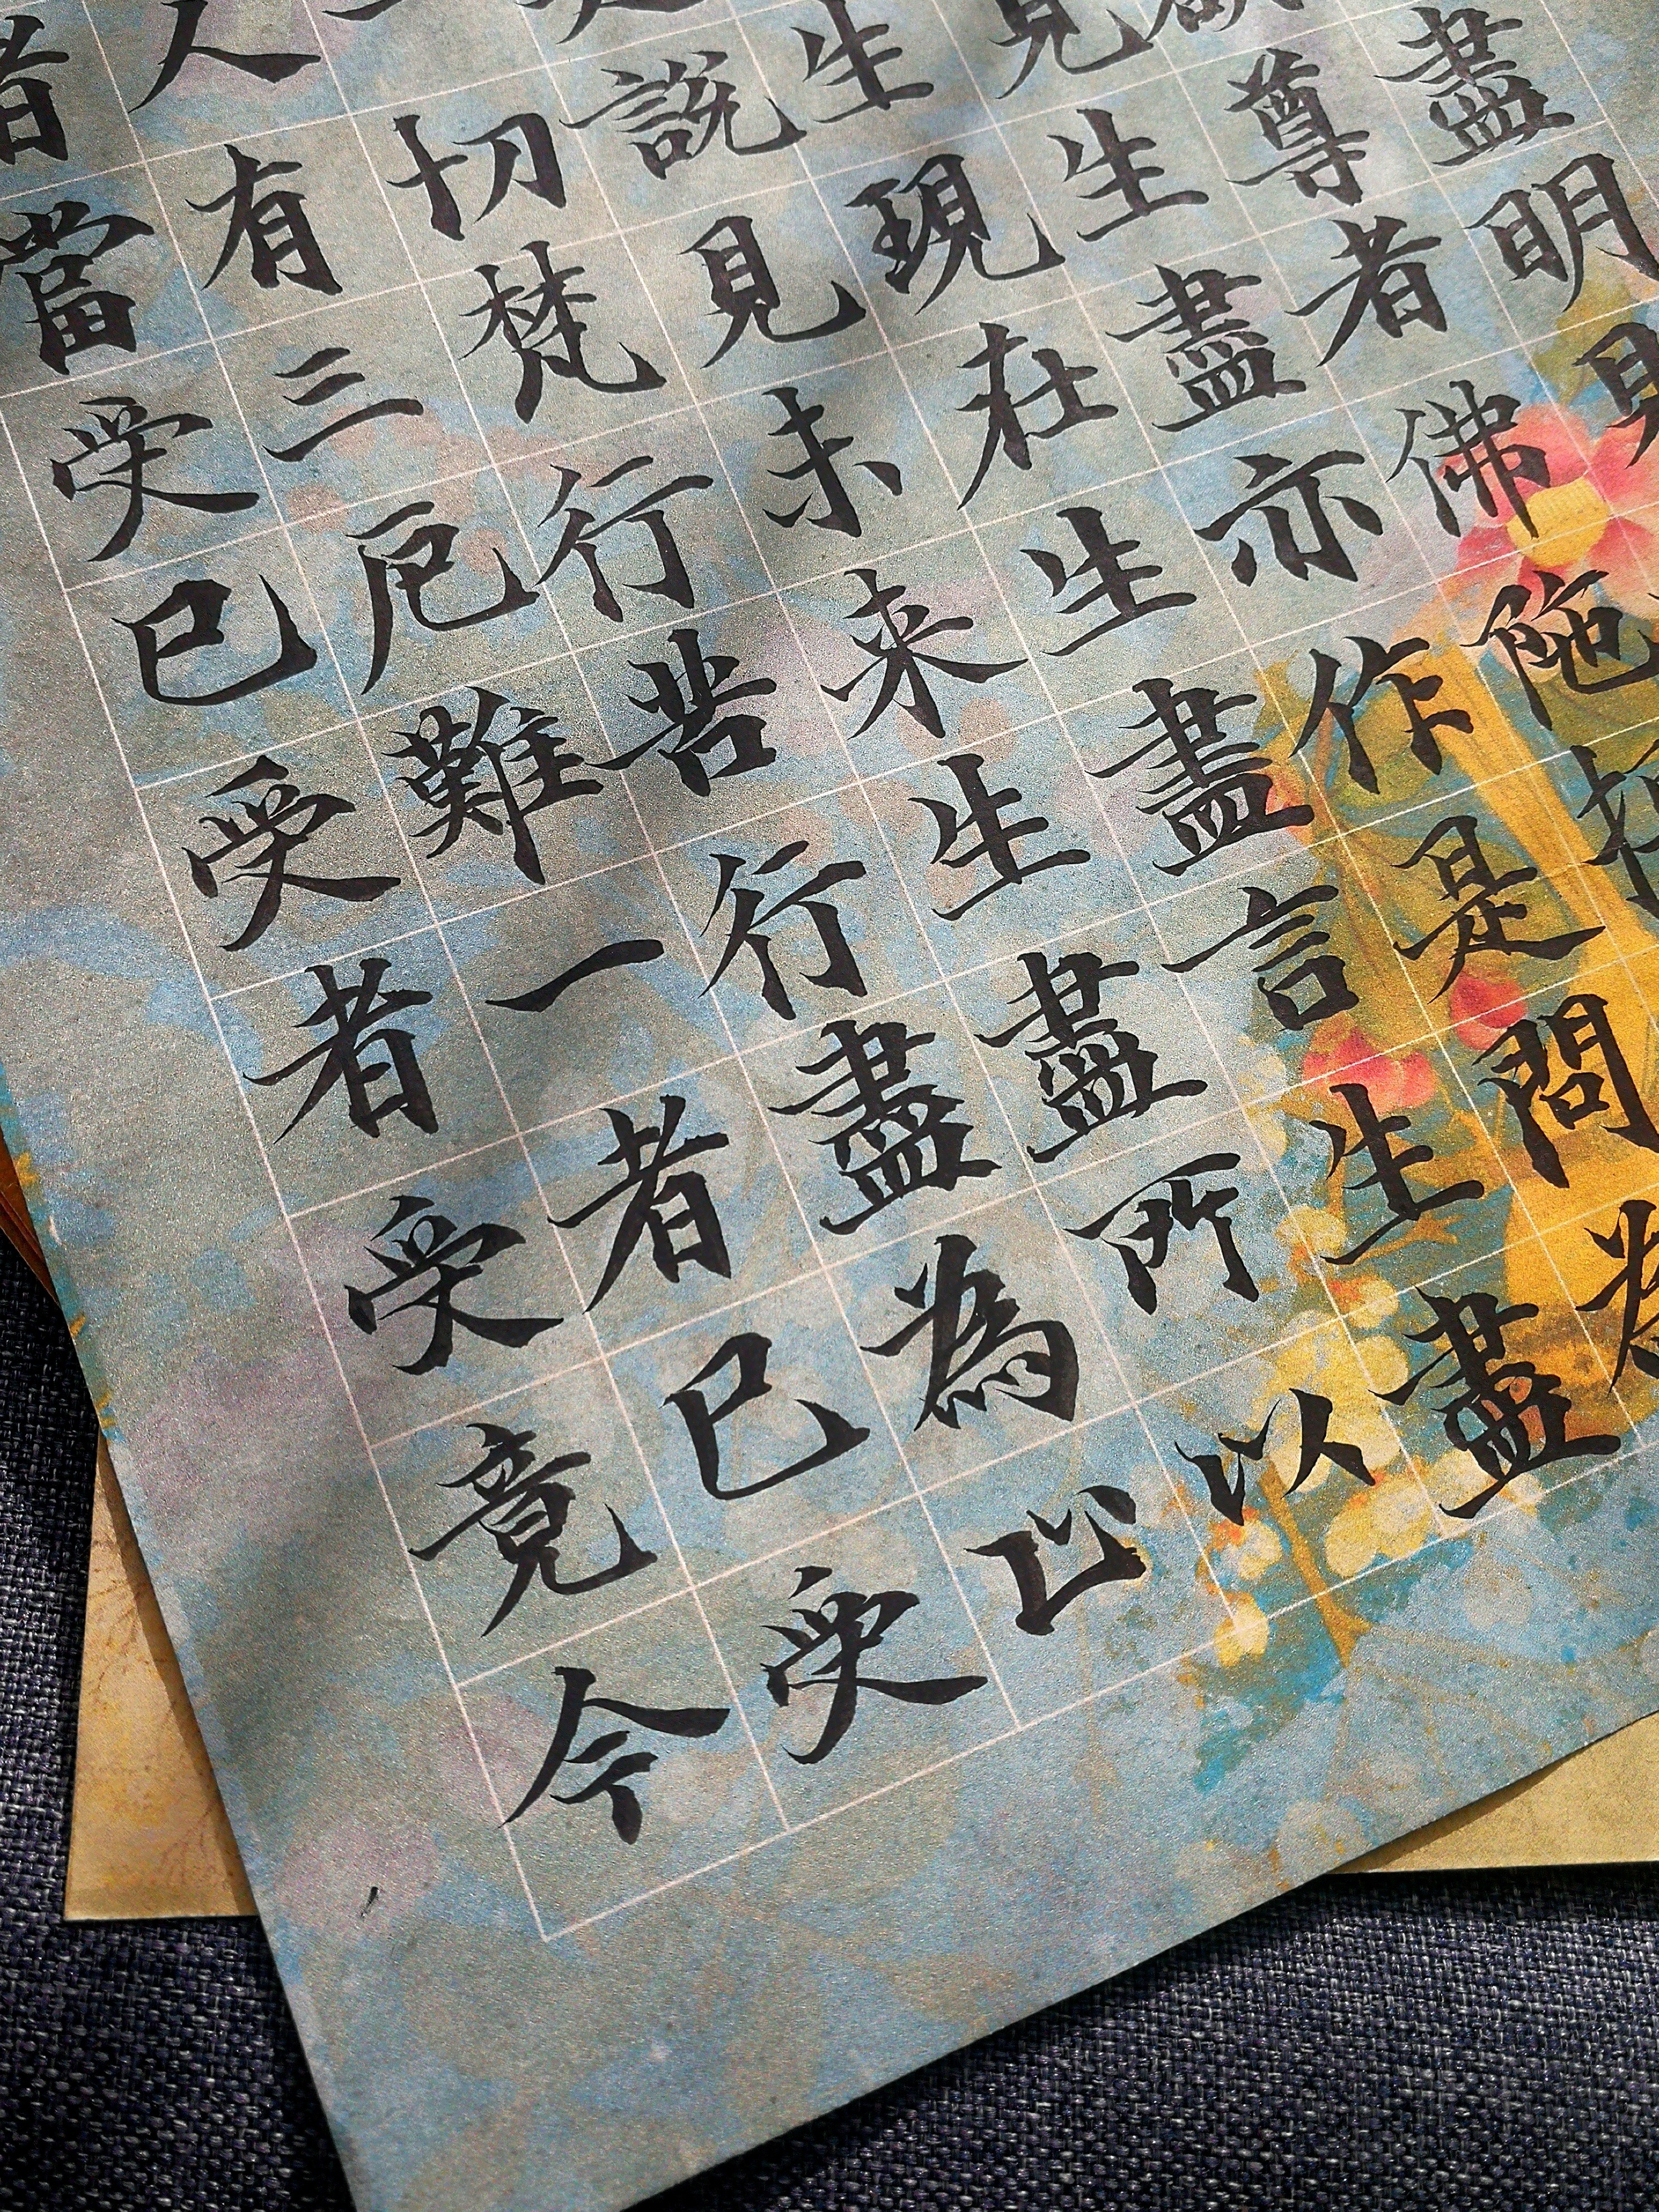 盡明
尊者佛陁
見生盡亦作是問
生現在生盡言生盡
説見未来生盡所以
切梵行苦行盡為
人有三厄難一者已受
者當受已受者受竟今